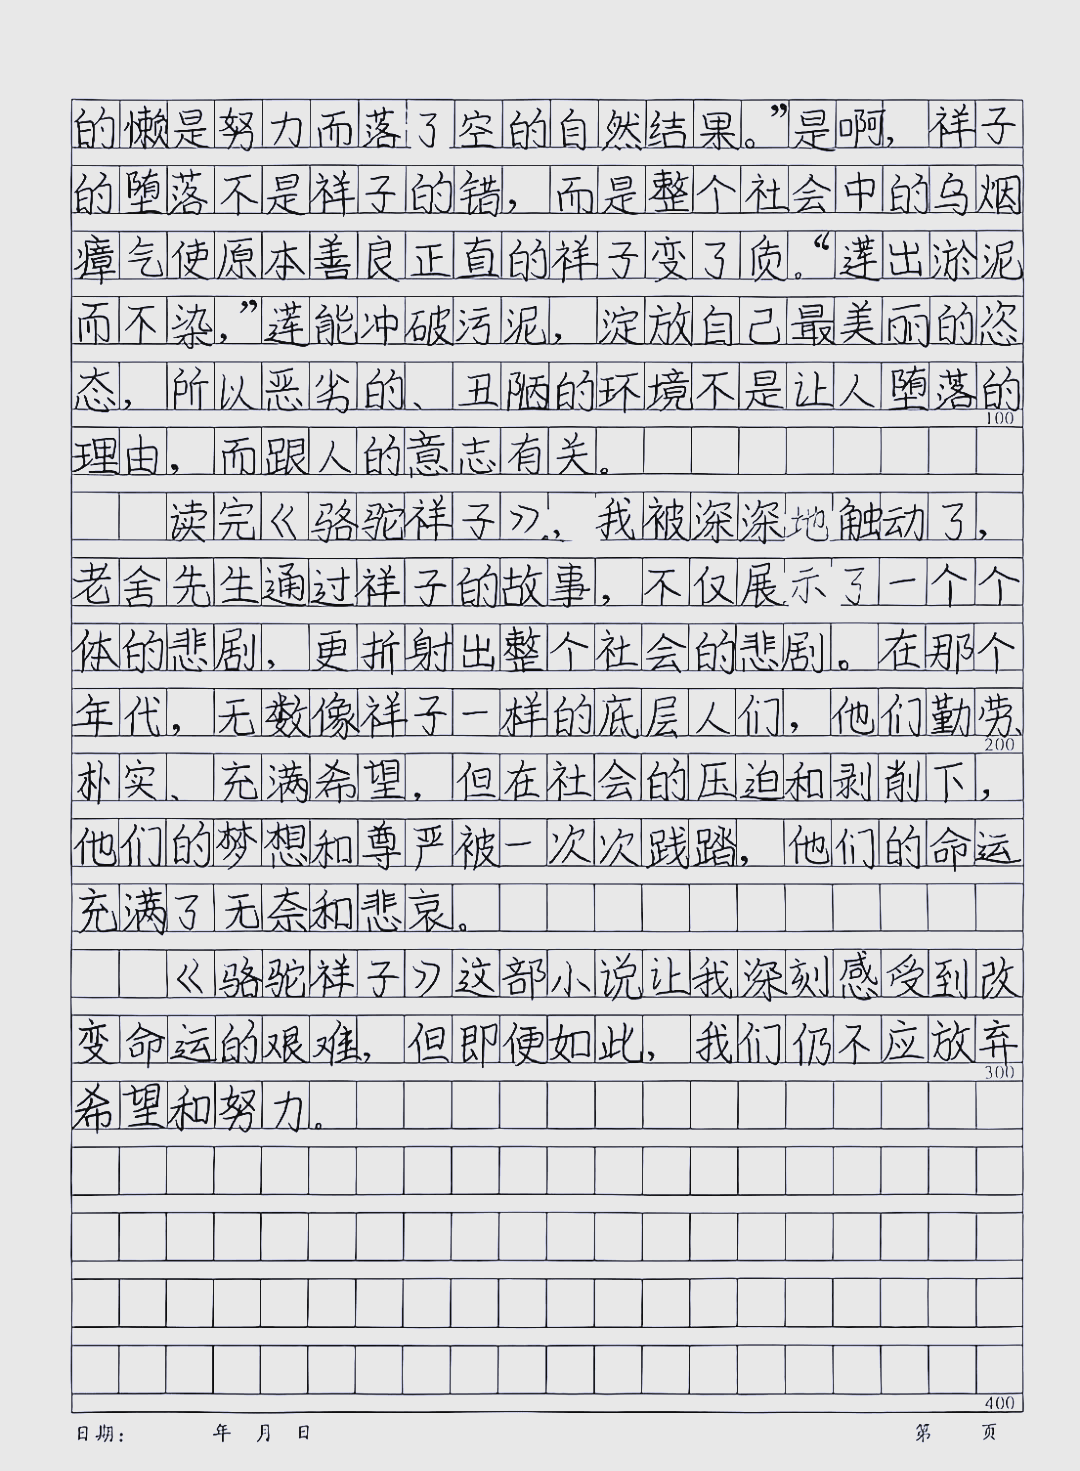 的懒是努力而落了空的自然结果。”是啊，祥子
的堕落不是祥子的错，而是整个社会中的乌烟
瘴气使原本善良正直的祥子变了质。“莲出淤泥
而不染，”莲能冲破污泥，淀放自己最美丽的恣
态，所以恶劣的、丑陋的环境不是让人堕落的
100
理由，而跟人的意志有关。
读完《骆驼祥子》，我被深深地触动了，
老舍先生通过祥子的故事，不仅展示了一个个
体的悲剧，更折射出整个社会的悲剧。在那个
年代，无数像祥子一样的底层人们，他们勤劳、
200
朴实、充满希望，但在社会的压迫和剥削下，
他们的梦想和尊严被一次次践踏，他们的命运
充满了无奈和悲哀。
《骆驼祥子》这部小说让我深刻感受到改
变命运的艰难，但即便如此，我们仍不应放弃
300
希望和努力。
400
日期： 年 月 日 第 页